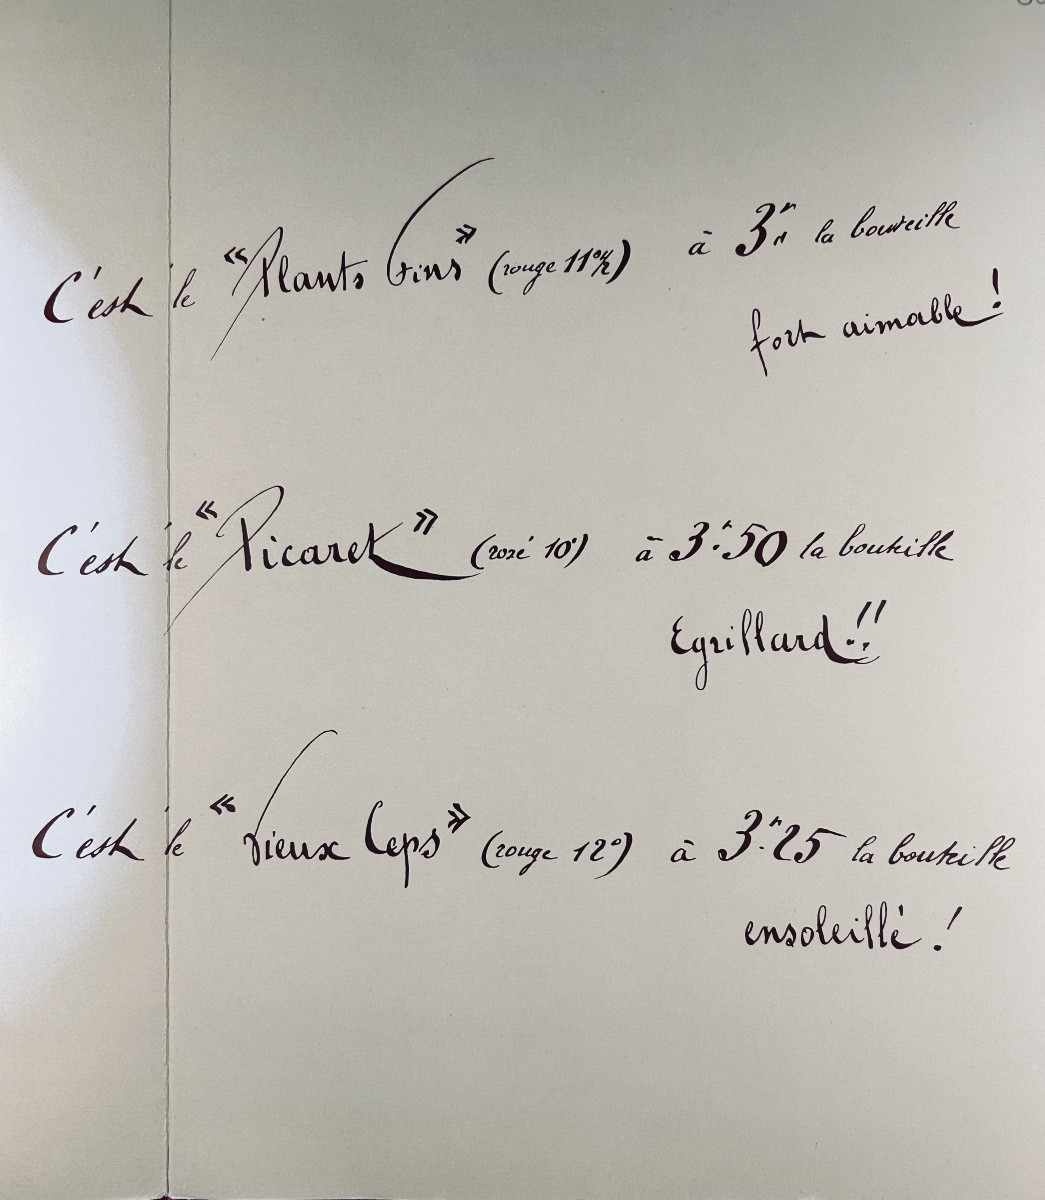 C'est le « Plants Fins » (rouge 11°½) à 3" la bouteille
fort aimable !
C'est le « Picaret » (rosé 10°) à 3.50 la bouteille
Egrillard !!
C'est le « Vieux Ceps » (rouge 12°) à 3.25 la bouteille
ensoleillé !